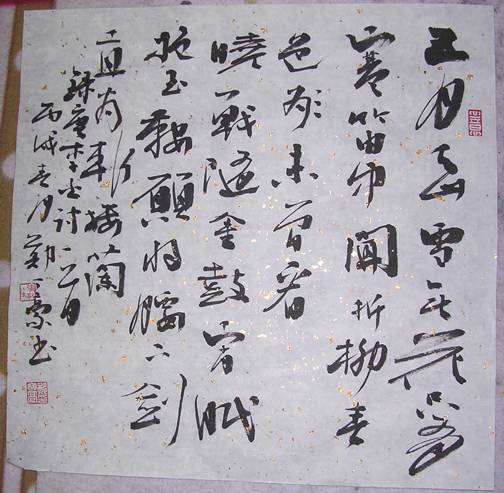 五月天山雪无花只有
寒笛中聞折柳春
色未曾看
曉戰隨金鼓宵眠
抱玉鞍願將腰下劍
直為斬樓蘭
録唐李白詩一首
丙戌春月书